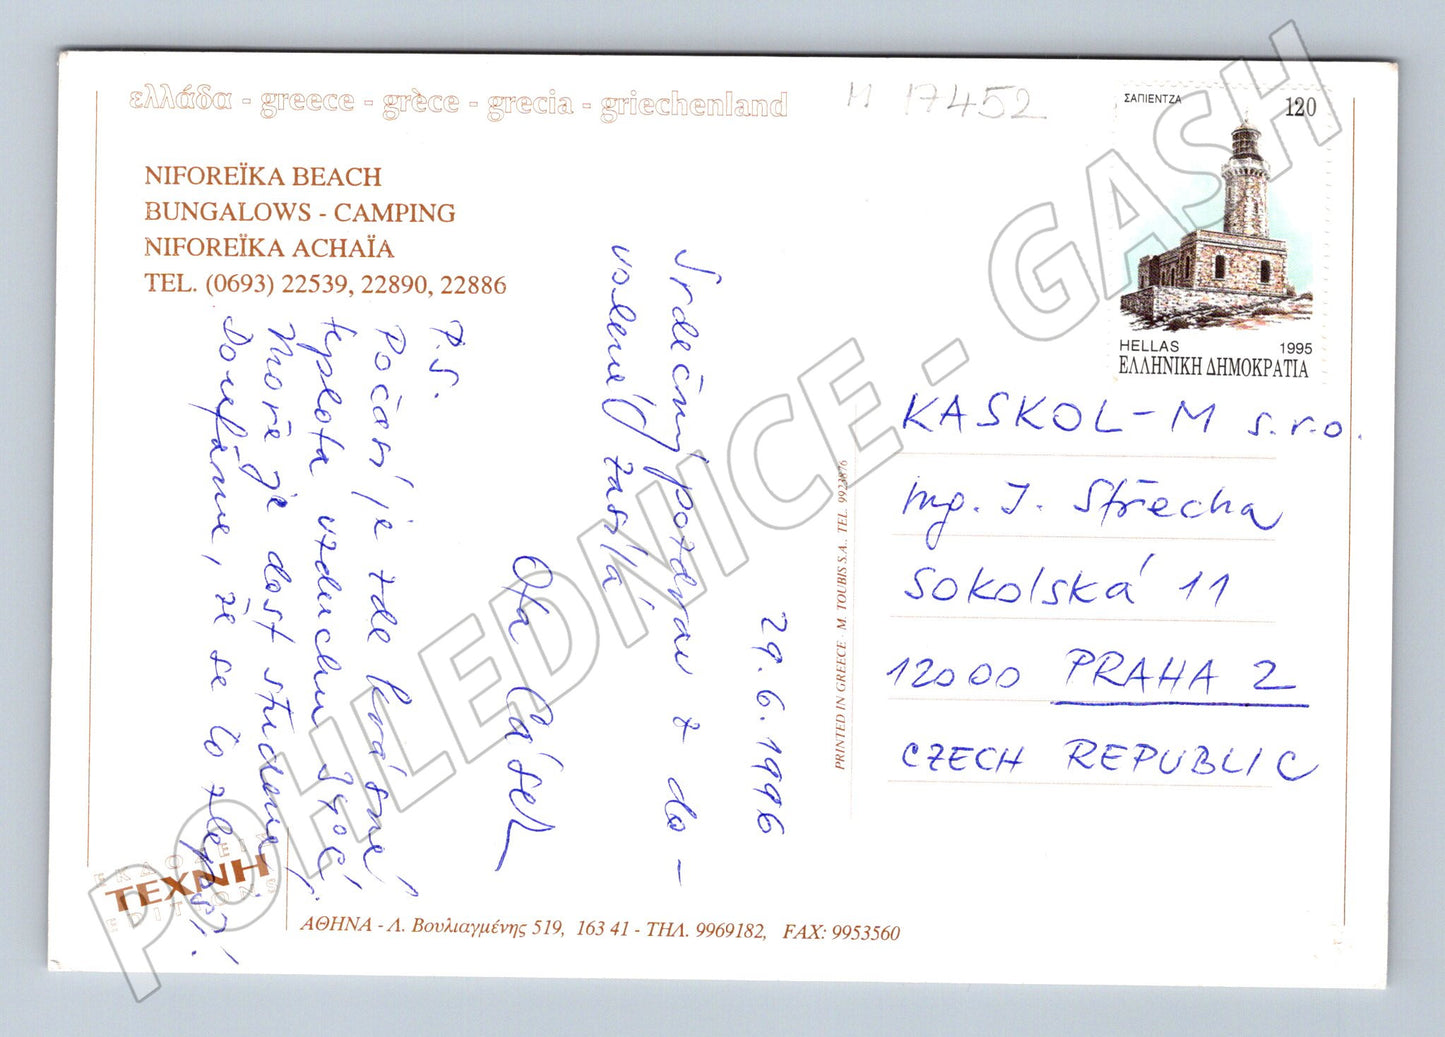 ελλάδα - greece - grèce - grecia - griechenland
M 17452
NIFOREÏKA BEACH
BUNGALOWS - CAMPING
NIFOREÏKA ACHAÏA
TEL. (0693) 22539, 22890, 22886
ΣΑΠΙΕΝΤΖΑ
120
HELLAS 1995
ΕΛΛΗΝΙΚΗ ΔΗΜΟΚΡΑΤΙΑ
29.6.1996
Srdečný pozdrav z do-
volené zasílá
Ota Čásek
P.S.
Počasí je zde krásné
teplota vzduchu 34°C,
Moře je dost studené
Doufáme, že se to zlepší!
KASKOL-M s.r.o.
Ing. J. Střecha
Sokolská 11
12000 PRAHA 2
CZECH REPUBLIC
PRINTED IN GREECE · M. TOUBIS S.A., TEL. 9923876
ΕΚΔΟΣΕΙΣ
ΤΕΧΝΗ
EDITIONS
ΑΘΗΝΑ - Λ. Βουλιαγμένης 519, 163 41 - ΤΗΛ. 9969182, FAX: 9953560
POHLEDNICE - GASH